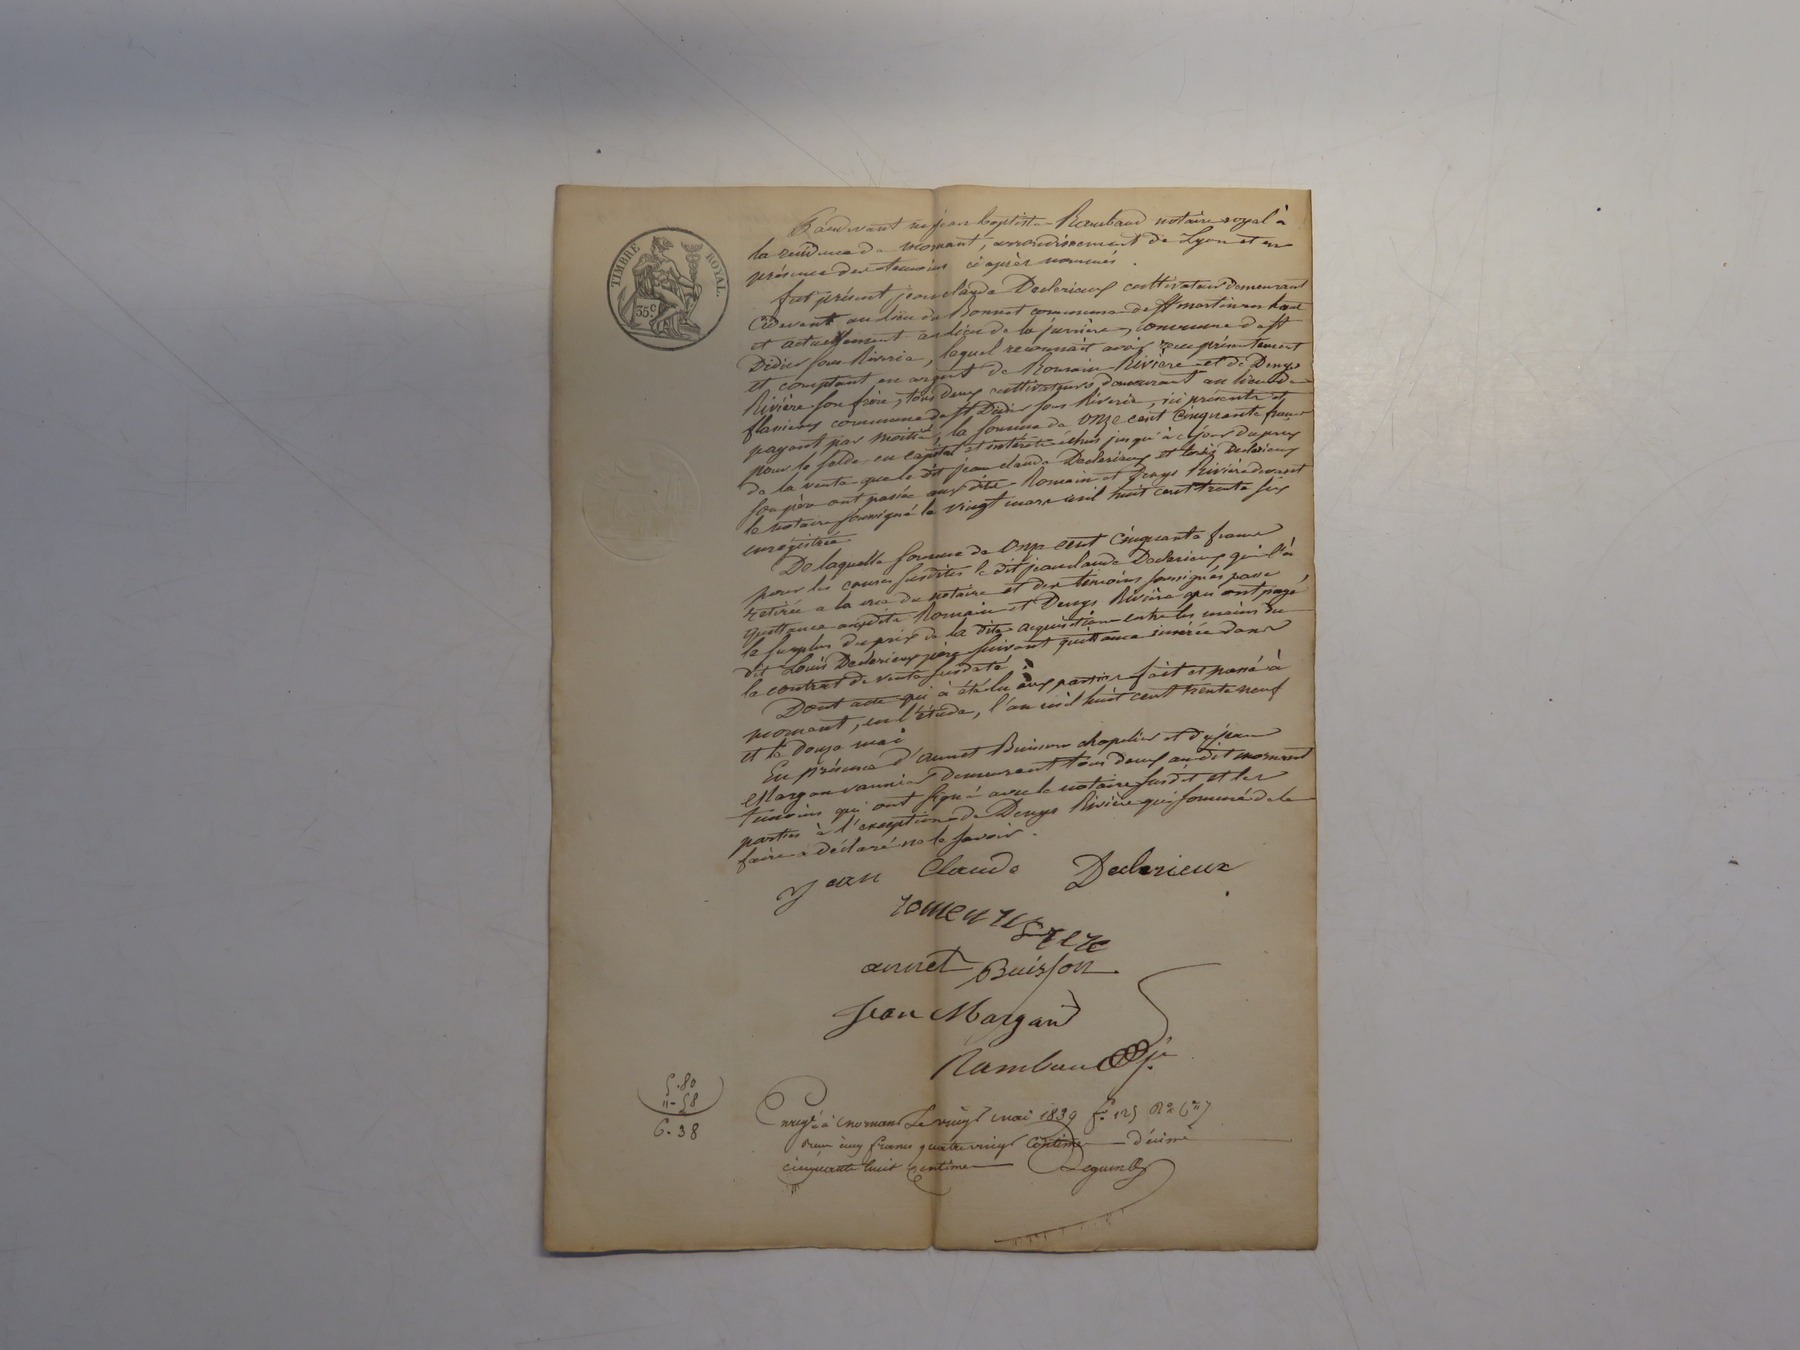 TIMBRE ROYAL.
35 c
Pardevant me jean baptiste Rambaud notaire royal à
la residence de mornant, arrondissement de Lyon et en
présence des temoins ci après nommés .
fut présent jean claude Declerieux cultivateur demeurant
cidevant au lieu de Bonnet commune de St martin en haut
et actuellement au lieu de la jurrière, commune de St
Didier sous Riverie, lequel reconnait avoir reçu présentement
et comptant en argent de Romain Rivière et de Denys
Rivière son frère, tous deux cultivateurs demeurant au lieu de
commune de St Didier sous Riverie, ici présents et
payant par moitié, la somme de onze cent cinquante francs
pour le solde en capital et intérêts échus jusqu'à ce jour du prix
de la vente que le dit jean claude Declerieux et Louis Declerieux
son père ont passée aux dits Romain et Denys Rivière devant
le notaire soussigné le vingt mars mil huit cent trente six
enregistrée.
De laquelle somme de onze cent cinquante francs
pour les causes susdites le dit jean claude Declerieux, qui l'a
retirée a la vue du notaire et des temoins soussignés passe
quittance auxdits Romain et Denys Rivière qui ont payé
le surplus du prix de la dite acquisition entre les mains du
dit Louis Declerieux père suivant quittance inserée dans
le contrat de vente susdaté .
Dont acte qui à été lu aux parties fait et passé à
mornant, en l'étude, l'an mil huit cent trente neuf
et le douze mai
En présence d'annet Buisson chapelier et de jean
Margan vannier demeurant tous deux au dit mornant
temoins qui ont signé avec le notaire susdit et les
parties à l'exception de Denys Rivière qui sommé de le
faire a déclaré ne le savoir .
jean Claude Declerieux
romen riviere
annet Buisson
Jean Margand
Rambaud
5.80
"-58
6.38
Enregé à mornant Le vingt mai 1839 fo 125
Reçu cinq francs quatre vingt centimes décime
cinquante huit centimes